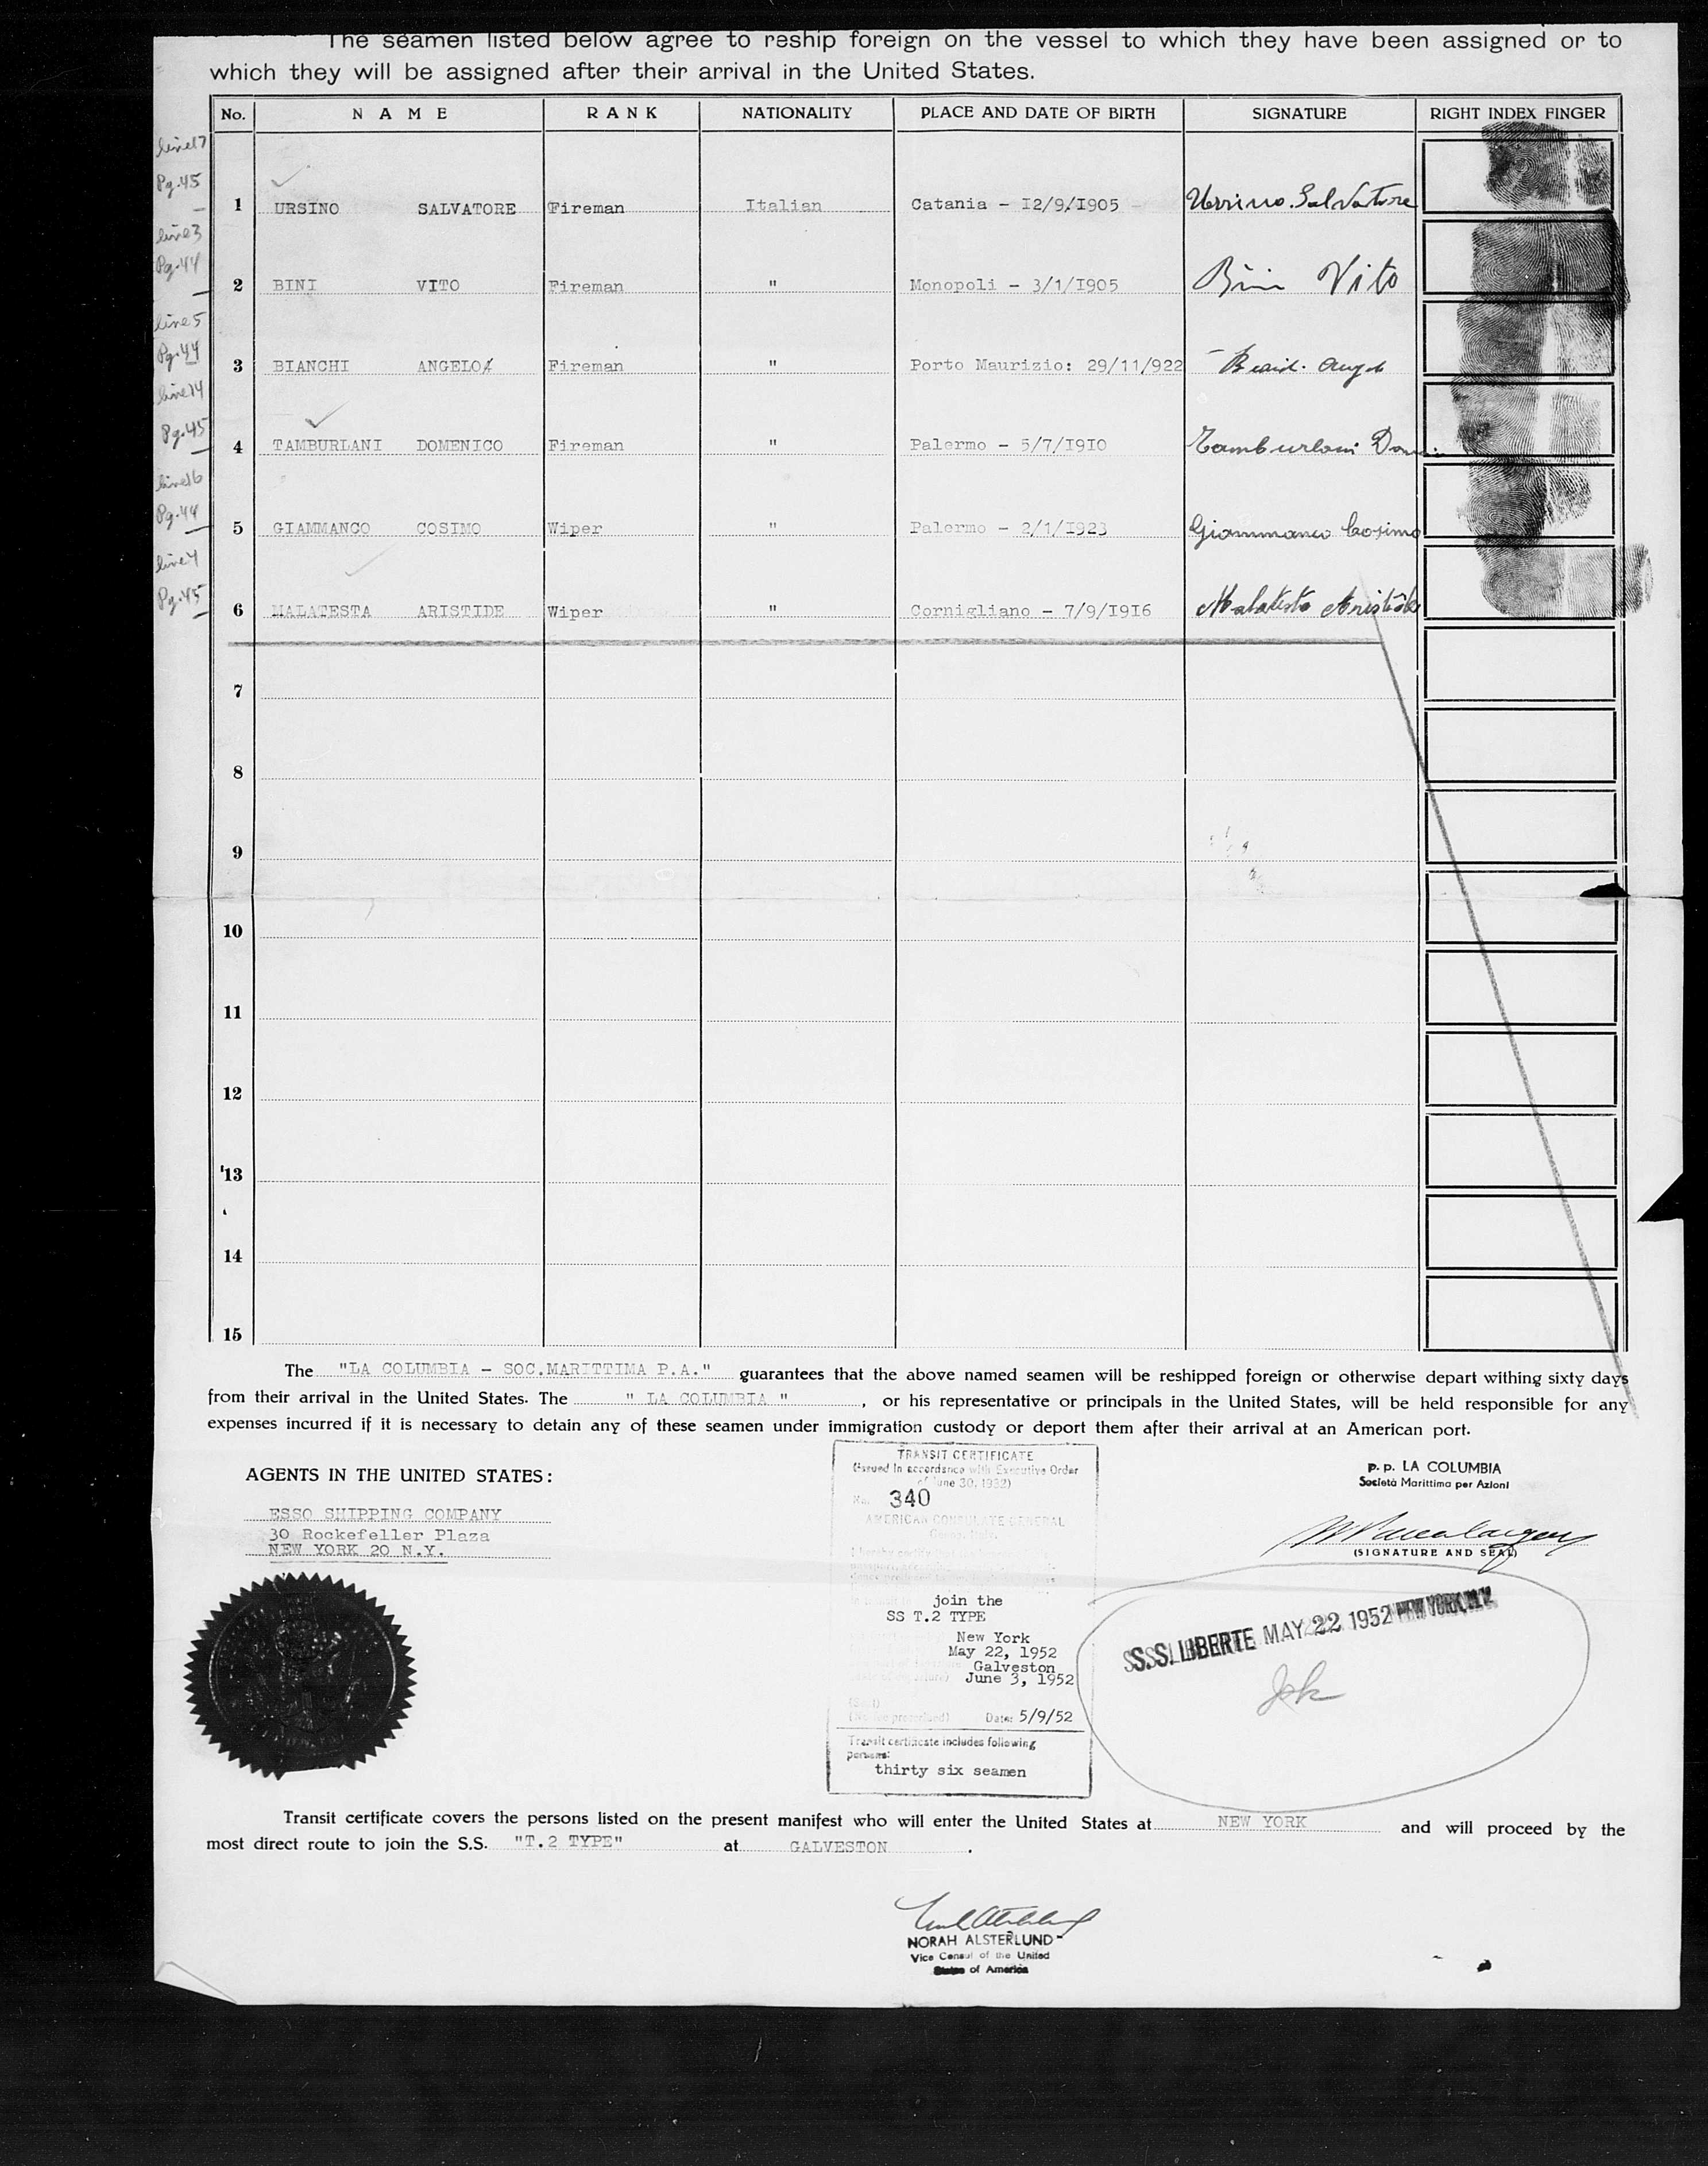 The seamen listed below agree to reship foreign on the vessel to which they have been assigned or to
which they will be assigned after their arrival in the United States.
No. NAME RANK NATIONALITY PLACE AND DATE OF BIRTH SIGNATURE RIGHT INDEX FINGER
line17
Pg.45
1 URSINO SALVATORE Fireman Italian Catania - I2/9/I905 Ursino Salvatore
line3
Pg.44
2 BINI VITO Fireman " Monopoli - 3/1/I905 Bini Vito
line5
Pg.44
3 BIANCHI ANGELO Fireman " Porto Maurizio: 29/11/922
line14
Pg.45
4 TAMBURLANI DOMENICO Fireman " Palermo - 5/7/I9I0 Tamburlani
line16
Pg.44
5 GIAMMANCO COSIMO Wiper " Palermo - 2/1/I923 Giammanco Cosimo
line4
Pg.45
6 MALATESTA ARISTIDE Wiper " Cornigliano - 7/9/I9I6 Malatesta Aristide
7
8
9
10
11
12
13
14
15
The "LA COLUMBIA - SOC.MARITTIMA P.A." guarantees that the above named seamen will be reshipped foreign or otherwise depart withing sixty days
from their arrival in the United States. The " LA COLUMBIA ", or his representative or principals in the United States, will be held responsible for any
expenses incurred if it is necessary to detain any of these seamen under immigration custody or deport them after their arrival at an American port.
AGENTS IN THE UNITED STATES:
ESSO SHIPPING COMPANY
30 Rockefeller Plaza
NEW YORK 20 N.Y.
TRANSIT CERTIFICATE
(Issued in accordance with Executive Order
of June 30, 1932)
No. 340
AMERICAN CONSULATE GENERAL
join the
SS T.2 TYPE
New York
May 22, 1952
Galveston
June 3, 1952
(Seal)
Date: 5/9/52
Transit certificate includes following
persons:
thirty six seamen
p. p. LA COLUMBIA
Società Marittima per Azioni
(SIGNATURE AND SEAL)
S.S. LIBERTE MAY 22 1952 NEW YORK, N.Y.
Transit certificate covers the persons listed on the present manifest who will enter the United States at NEW YORK and will proceed by the
most direct route to join the S.S. "T.2 TYPE" at GALVESTON .
NORAH ALSTERLUND
Vice Consul of the United
States of America